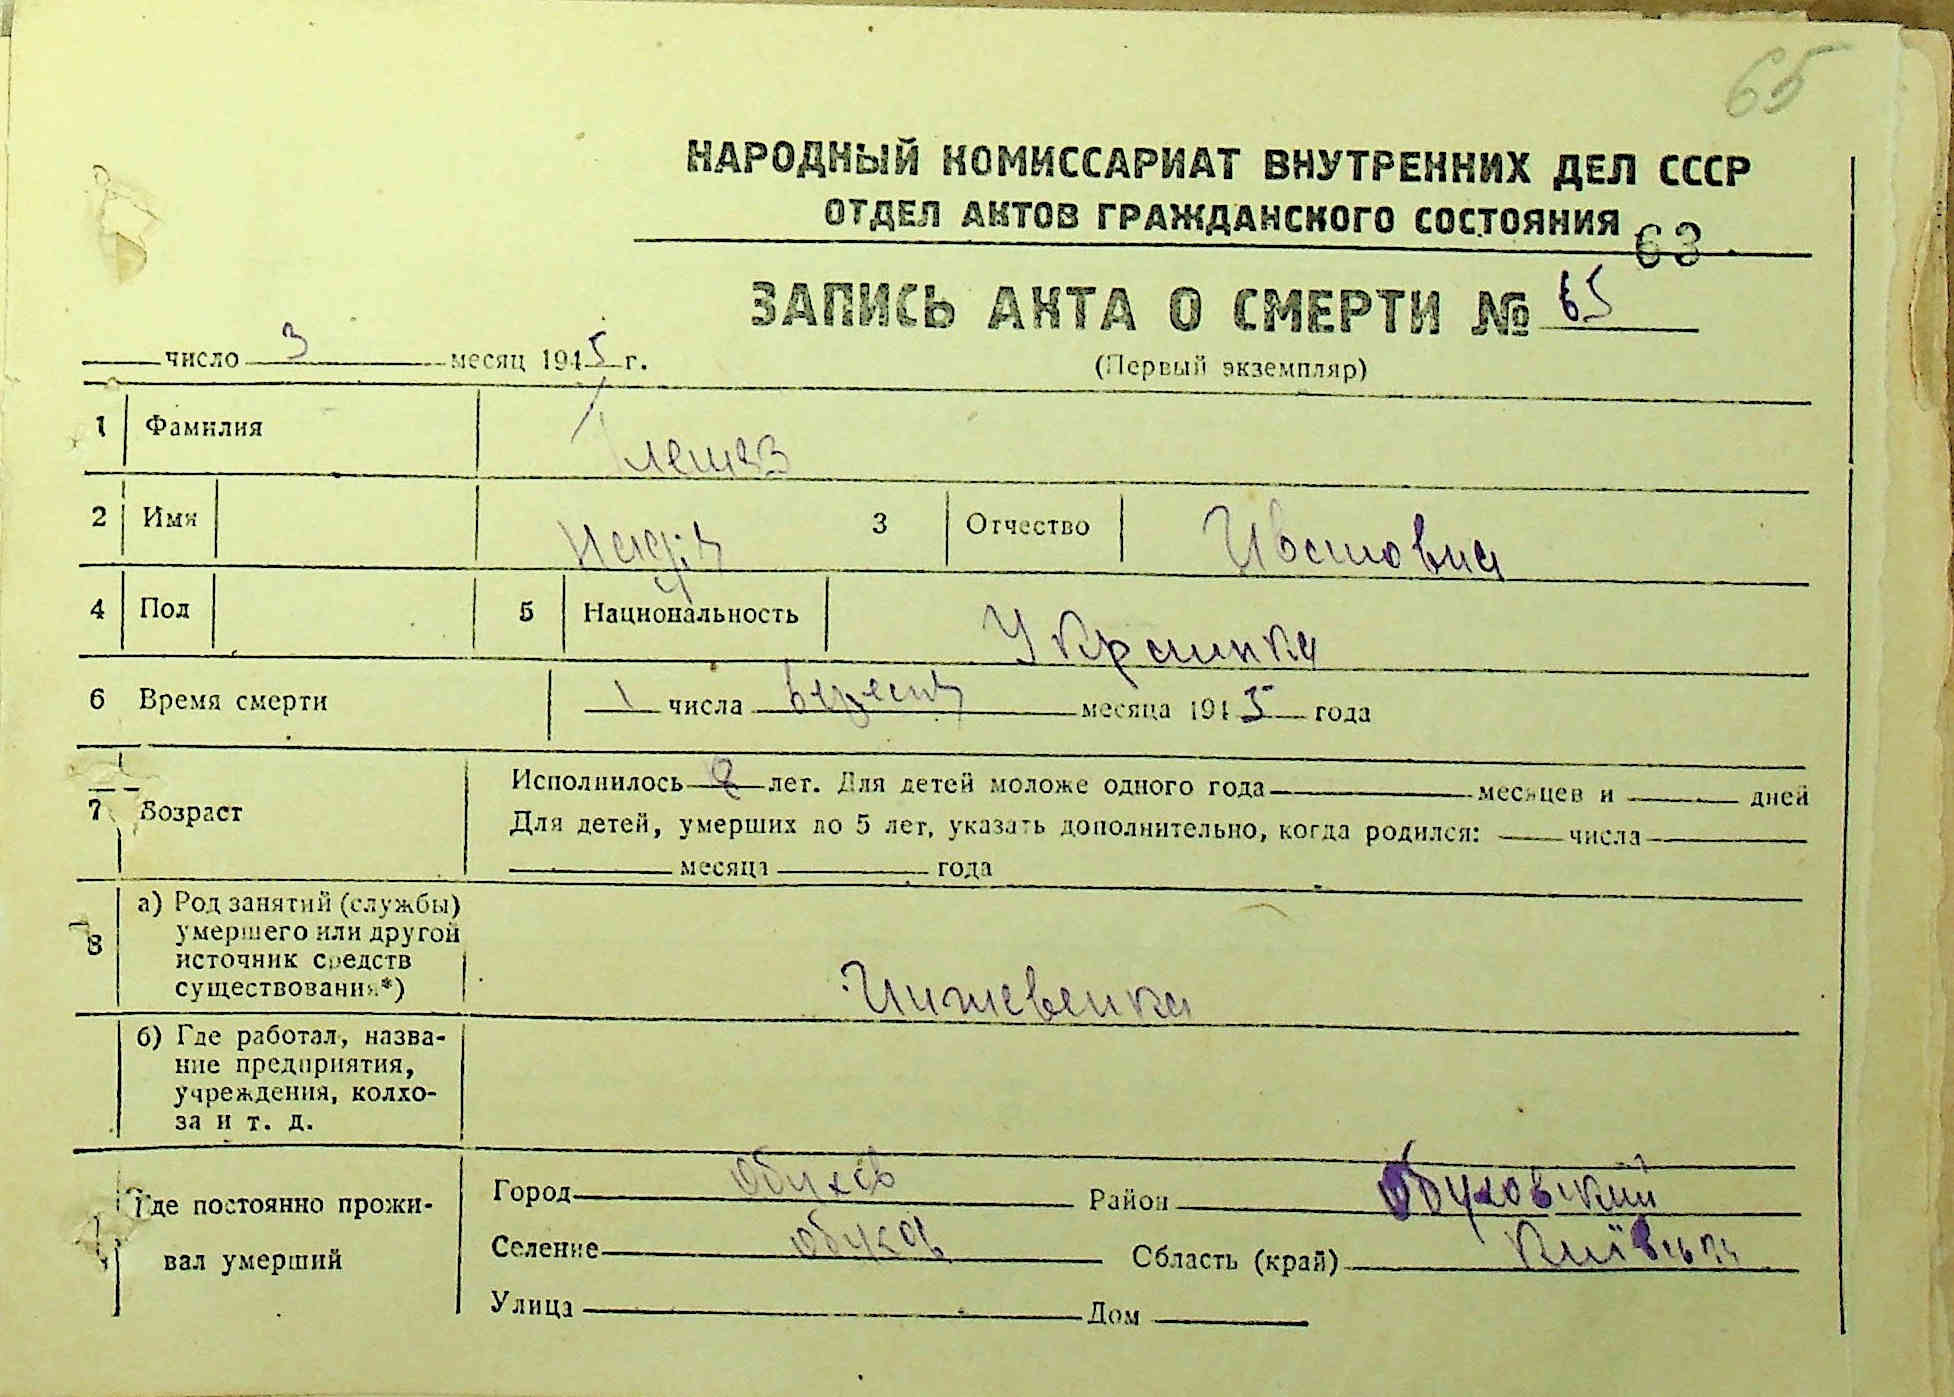 65
НАРОДНЫЙ КОМИССАРИАТ ВНУТРЕННИХ ДЕЛ СССР
ОТДЕЛ АКТОВ ГРАЖДАНСКОГО СОСТОЯНИЯ
63
ЗАПИСЬ АКТА О СМЕРТИ № 65
число 3 месяц 1945 г.
(Первый экземпляр)
1 Фамилия
2 Имя Надія 3 Отчество Ивановна
4 Пол 5 Национальность Украинка
6 Время смерти 1 числа вересня месяца 1945 года
7 Возраст
Исполнилось лет. Для детей моложе одного года месяцев и дней
Для детей, умерших до 5 лет, указать дополнительно, когда родился: числа
месяца года
8 а) Род занятий (службы)
умершего или другой
источник средств
существования*)
Иждевенка
б) Где работал, назва-
ние предприятия,
учреждения, колхо-
за и т. д.
Где постоянно прожи-
вал умерший
Город Обухов Район Обуховский
Селение Обухов Область (край) Київська
Улица Дом